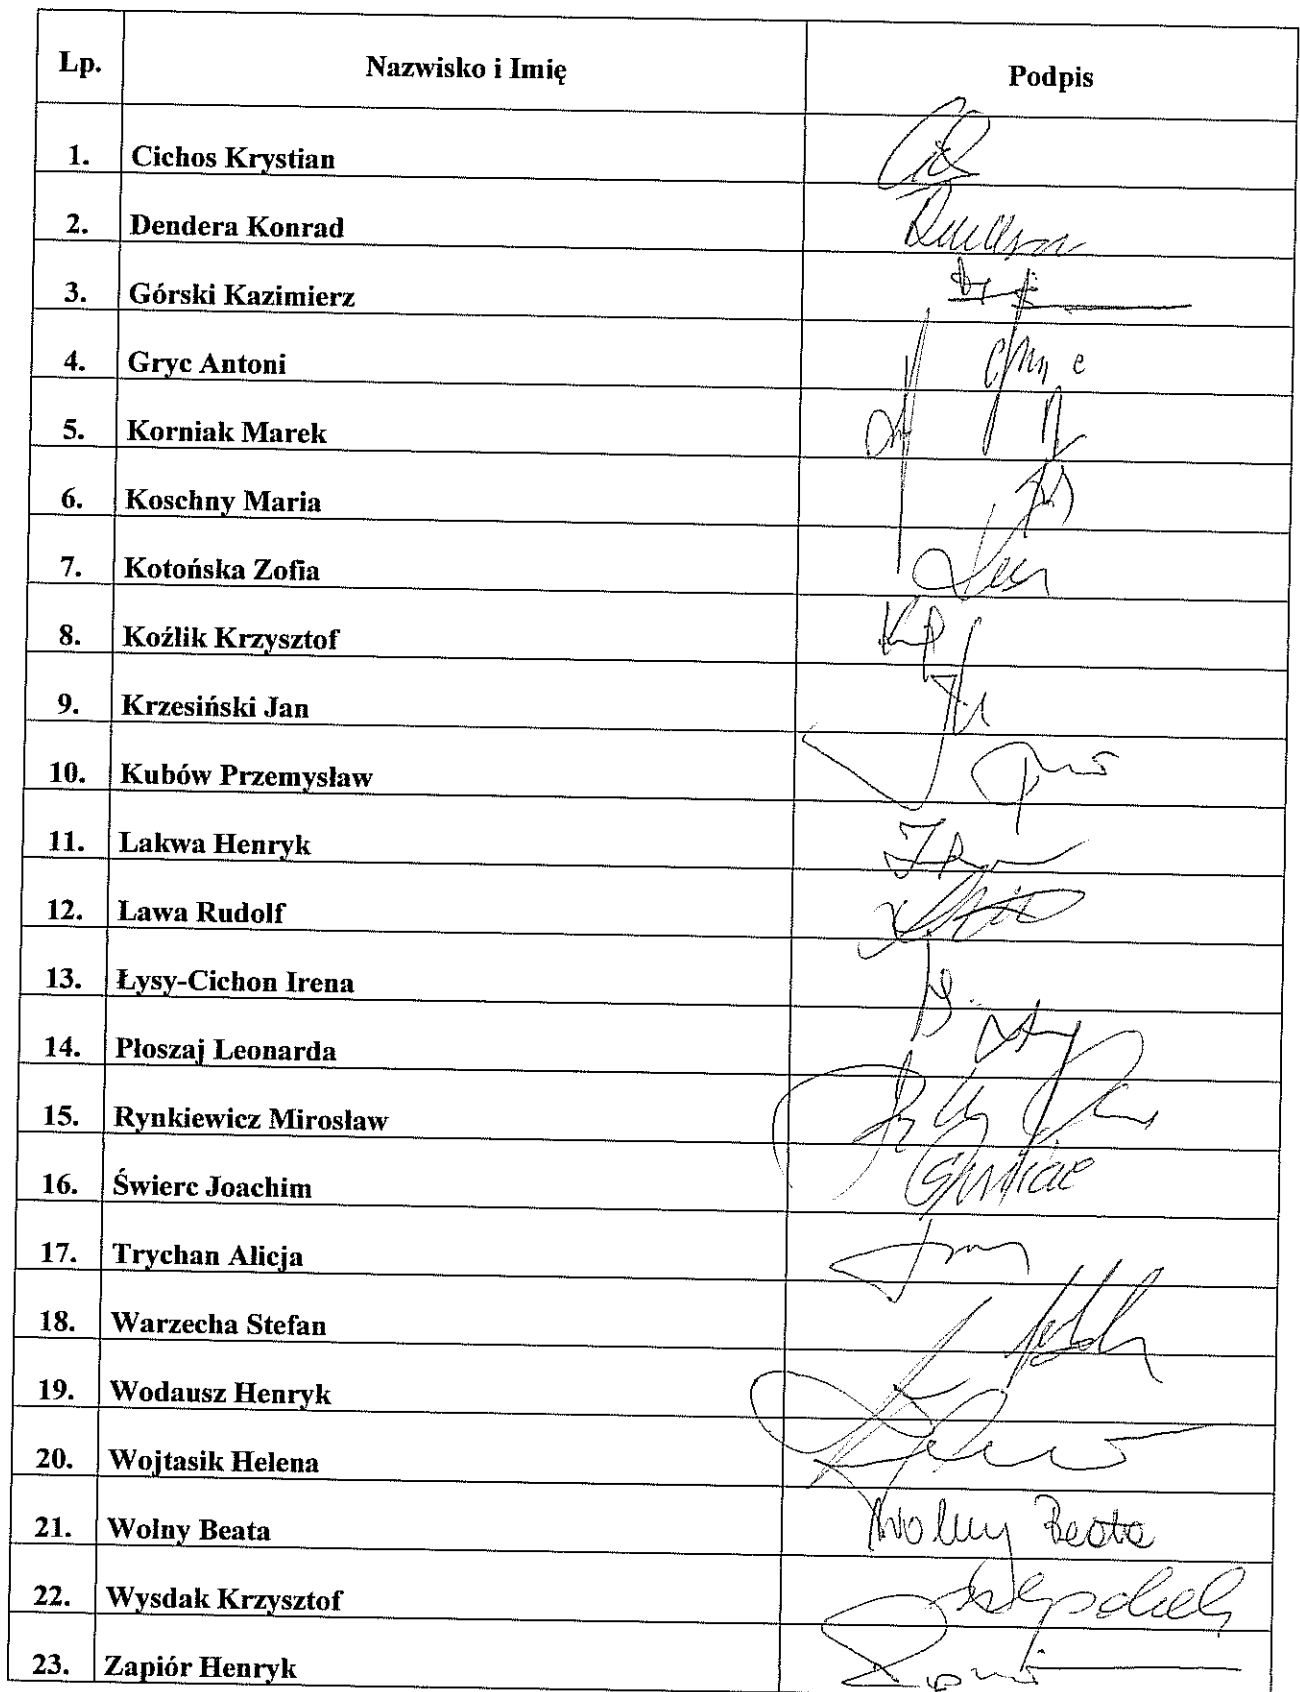 Lp. Nazwisko i Imię Podpis
1. Cichos Krystian
2. Dendera Konrad
3. Górski Kazimierz
4. Gryc Antoni
5. Korniak Marek
6. Koschny Maria
7. Kotońska Zofia
8. Koźlik Krzysztof
9. Krzesiński Jan
10. Kubów Przemysław
11. Lakwa Henryk
12. Lawa Rudolf
13. Łysy-Cichon Irena
14. Płoszaj Leonarda
15. Rynkiewicz Mirosław
16. Świerc Joachim
17. Trychan Alicja
18. Warzecha Stefan
19. Wodausz Henryk
20. Wojtasik Helena
21. Wolny Beata Wolny Beata
22. Wysdak Krzysztof
23. Zapiór Henryk